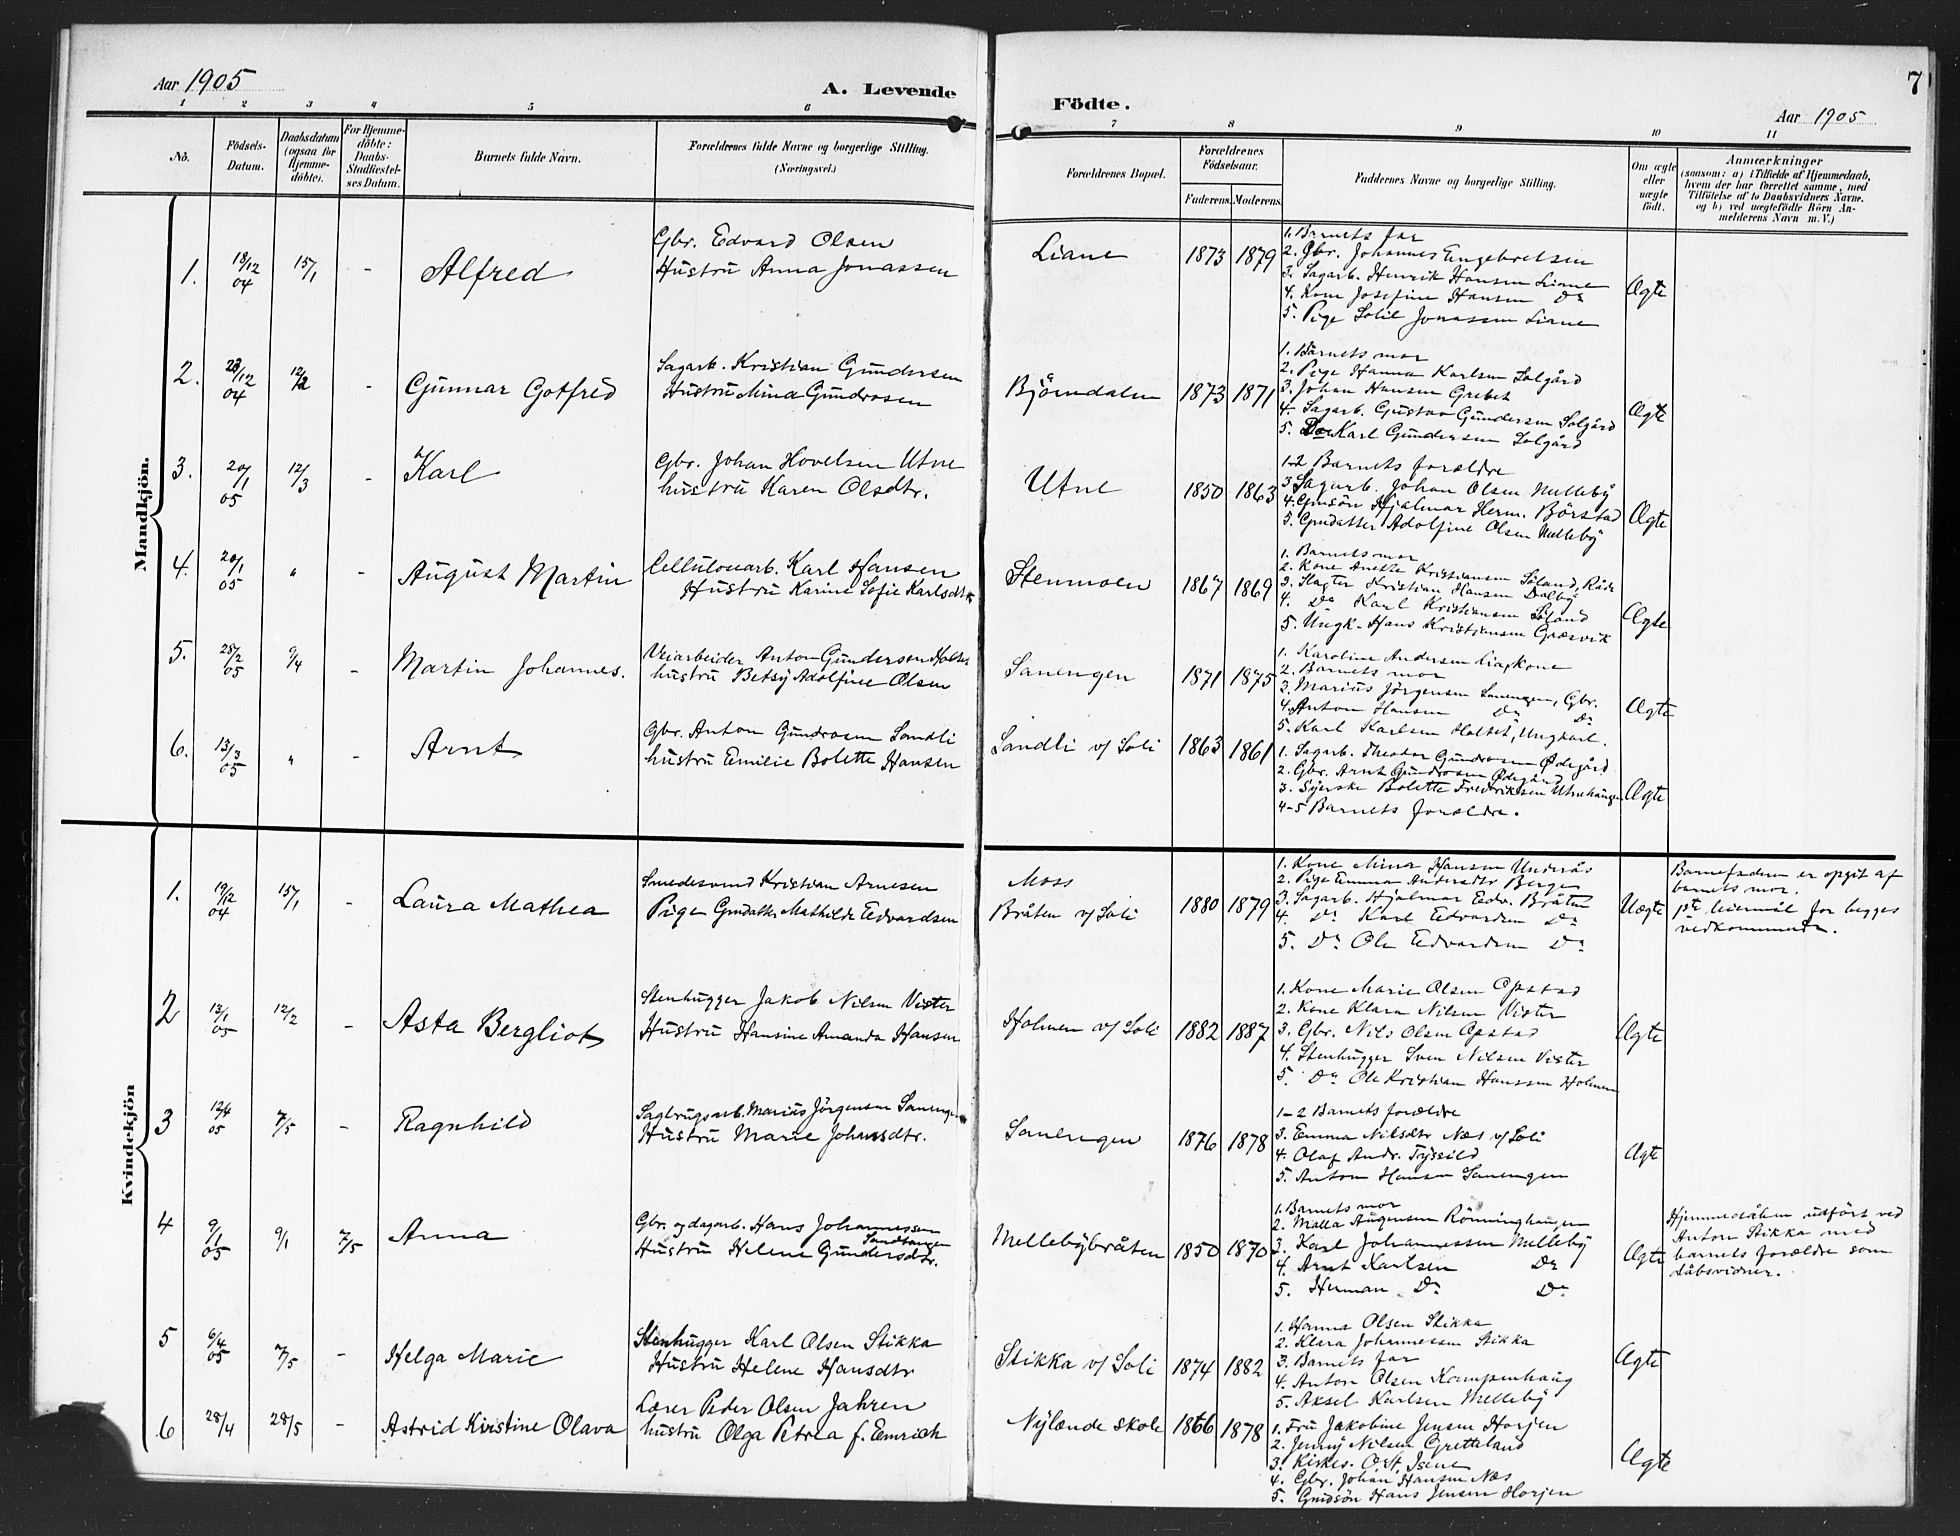 Aar 1905
A. Levende Födte.
7
Aar 1905
1 2 3 4 5 6 7 8 9 10 11
No.
Födsels-Datum.
Daabsdatum (ogsaa for Hjemme-döbte).
For Hjemme-döbte: Daabs-Stadfæstel-ses Datum.
Barnets fulde Navn.
Forældrenes fulde Navne og borgerlige Stilling.
(Næringsvei.)
Forældrenes Bopæl.
Forældrenes Födselsaar.
Faderens. Moderens.
Faddernes Navne og borgerlige Stilling.
Om ægte eller uægte födt.
Anmærkninger
(saasom: a) i Tilfælde af Hjemmedaab,
hvem der har forrettet samme, med
Tilföielse af to Daabsvidners Navne.
og b) ved uægtefödte Börn An-
melderens Navn m. V.)
Mandkjön.
1. 18/12 04 15/1 - Alfred
Gbr. Edvard Olsen
Hustru Anna Jonassen
Liane 1873 1879
1. Barnets far
2. Gbr. Johannes Engebretsen
3. Sagarb. Henrik Hansen Liane
4. Kone Josefine Hansen Do
5. Pige Solie Jonassen Liane
Ægte
2. 23/12 04 12/2 - Gunnar Gotfred
Sagarb. Kristian Gundersen
Hustru Mina Gundrosen
Bjørndalen 1873 1871
1. Barnets mor
2. Pige Hanna Karlsen Solgård
3. Johan Hansen Grebet
4. Sagarb. Gustav Gundersen Solgård
5. Do Karl Gundersen Solgård
Ægte
3. 20/1 05 12/3 - Karl
Gbr. Johan Hovelsen Utne
hustru Karen Olsdtr.
Utne 1850 1863
1-2 Barnets forældre
3 Sagarb. Johan Olsen Melleby
4. Gmsön Hjalmar Herm. Börstad
5. Gmdatter Adolfine Olsen Melleby
Ægte
4. 20/1 05 " - August Martin
Cellulosearb. Karl Hansen
Hustru Karine Sofie Karlsdtr
Stenmoen 1867 1869
1. Barnets mor
2. Kone Anette Kristiansen Söland, Råde
3. Slagter Kristian Hansen Dalby
4. Do Karl Kristiansen Söland
5. Ungk. Hans Kristiansen Græsvik
Ægte
5. 28/2 05 9/4 - Martin Johannes.
Veiarbeider Anton Gundersen
hustru Betsy Adolfine Olsen
Sanengen 1871 1875
1. Karoline Andersen kone
2. Barnets mor
3. Marius Jörgensen Sanengen, Gbr.
4. Anton Hansen Do Do
5. Karl Karlsen Holtet, Ungkarl.
Ægte
6. 13/3 05 " - Arnt
Gbr. Anton Gundrosen Sandli
hustru Emilie Bolette Hansen
Sandli v/ Soli 1863 1861
1. Sagarb. Theodor Gundrosen Ødegård
2. Gbr. Arnt Gundrosen Ødegård
3. Syerske Bolette Fredriksen Utnehaugen
4-5 Barnets forældre.
Ægte
Kvindekjön
1. 19/12 04 15/1 - Laura Mathea
Smedesvend Kristian Arnesen
Pige Gmdatter Mathilde Edvardsen
Moss
Bråten v/ Soli 1880 1879
1. Kone Mina Hansen Underås
2. Pige Emma Andersdtr Berge
3. Sagarb. Hjalmar Edv. Bråten
4. Do Karl Edvardsen Do
5. Do Ole Edvardsen Do
Uægte
Barnefaderen er opgit af
barnets mor.
1ste leiermål for begges
vedkommende.
2 13/1 05 12/2 - Asta Bergliot
Stenhugger Jakob Nilsen Vister
Hustru Hansine Amanda Hansen
Holmen v/ Soli 1882 1887
1. Kone Marie Olsen Opstad
2. Kone Klara Nilsen Vister
3. Gbr. Nils Olsen Opstad
4. Stenhugger Sven Nilsen Vister
5. Do Ole Kristian Hanssen Holmen
Ægte
3 13/4 05 7/5 - Ragnhild
Sagbrugsarb. Marius Jörgensen Sanengen
Hustru Marie Johansdtr.
Sanengen 1876 1878
1-2 Barnets forældre
3. Emma Nilsdtr Næs v/ Soli
4. Olaf Andr. Trysild
5. Anton Hansen Sanengen
Ægte
4 9/1 05 9/1 7/5 Anna
Gbr. og dagarb. Hans Johannessen Sandtangen
Hustru Helene Gundersdtr.
Mellebybråten 1850 1870
1. Barnets mor
2. Malla Augensen Rönninghaugen
3. Karl Johannessen Melleby
4. Arnt Karlsen Do
5. Herman Do Do
Ægte
Hjemmedåben utført ved
Anton Stikka med
barnets forældre som
dåbsvidner.
5 6/4 05 7/5 - Helga Marie
Stenhugger Karl Olsen Stikka
Hustru Helene Hansdtr
Stikka v/ Soli 1874 1882
1. Hanna Olsen Stikka
2. Klara Johannessen Stikka
3. Barnets far
4. Anton Olsen Kampenhaug
5. Aksel Karlsen Melleby
Ægte
6 28/4 28/5 - Astrid Kirstine Olava
Lærer Peder Olsen Jahren
hustru Olga Petrea f. Emrich
Nylænde skole 1866 1878
1. Fru Jakobine Jensen Horjen
2. Jenny Nilsen Gretteland
3. Kirkes. O. Isene
4. Gbr. Johan Hansen Næs
5. Gmdsön Hans Jensen Horjen
Ægte